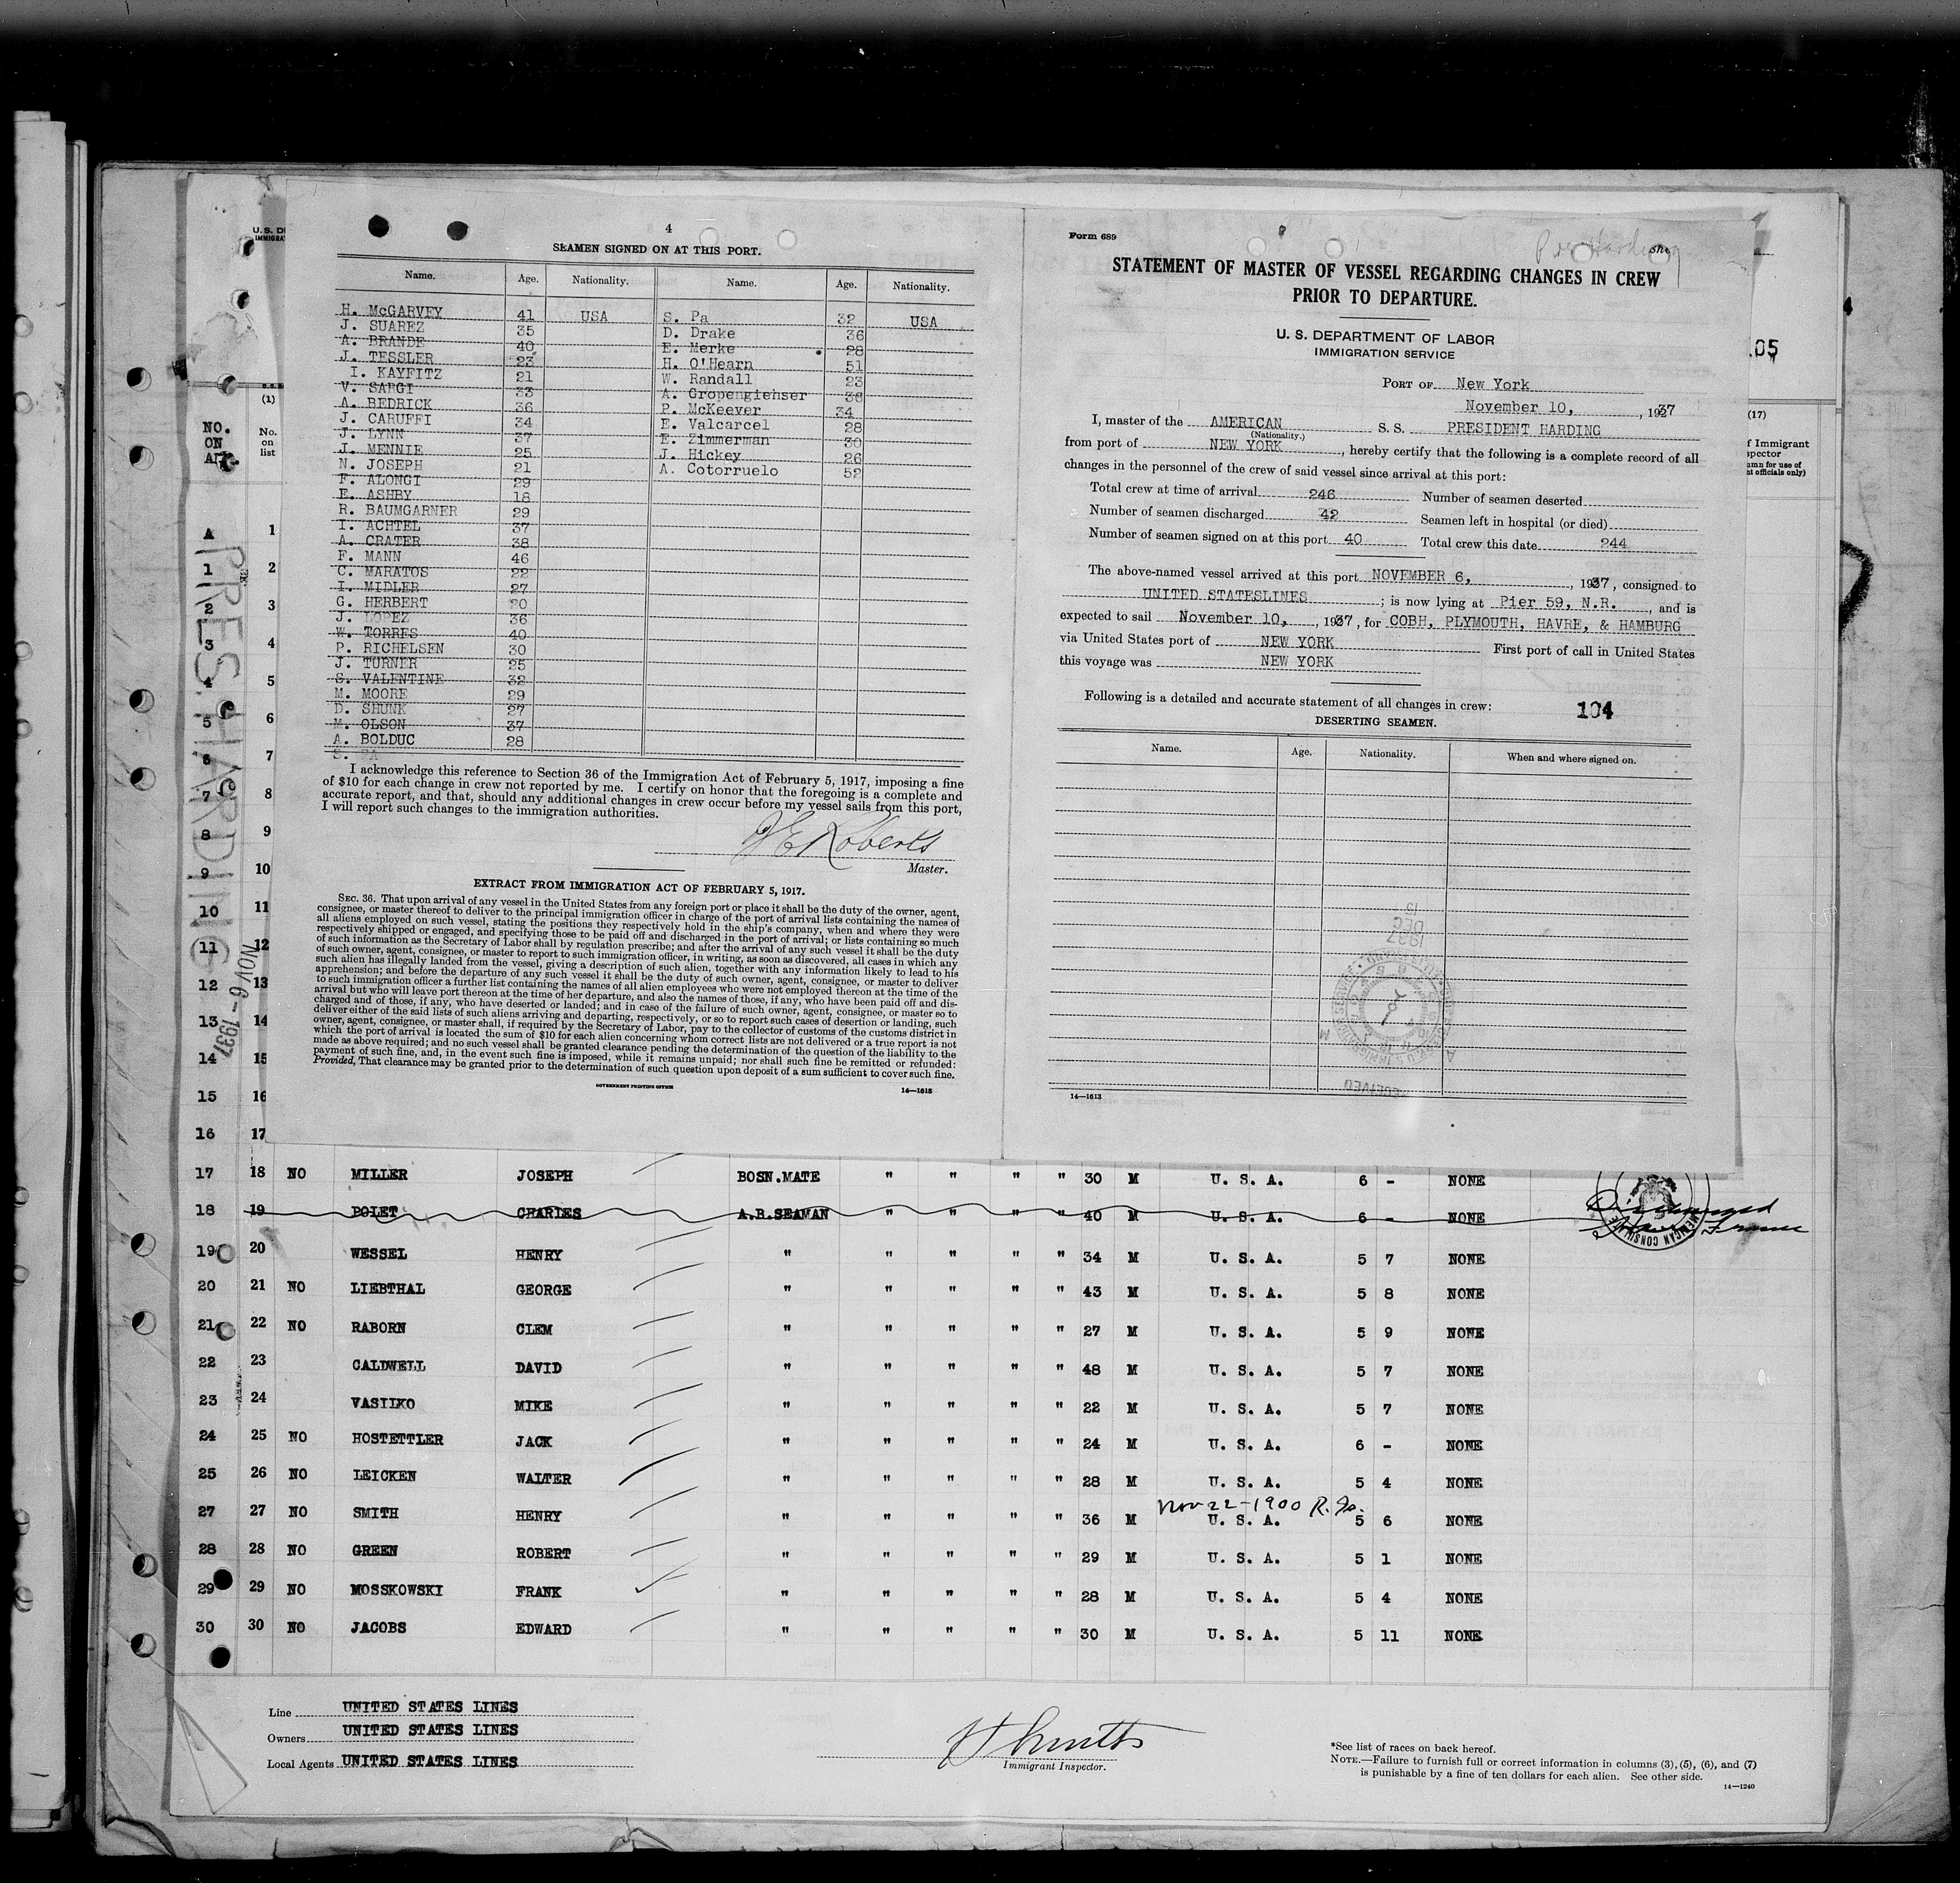 4
SEAMEN SIGNED ON AT THIS PORT.
Name. Age. Nationality. Name. Age. Nationality.
H. McGARVEY 41 USA S. Pa 32 USA
J. SUAREZ 35 D. Drake 36
A. BRANDE 40 E. Merke 28
J. TESSLER 23 H. O'Hearn 51
I. KAYFITZ 21 W. Randall 23
V. SARGI 33 A. Gropengiehser 36
A. BEDRICK 36 P. McKeever 34
J. CARUFFI 34 E. Valcarcel 28
J. LYNN 37 E. Zimmerman 30
J. MENNIE 25 J. Hickey 26
N. JOSEPH 21 A. Cotorruelo 52
F. ALONGI 29
E. ASHBY 18
R. BAUMGARNER 29
I. ACHTEL 37
A. CRATER 38
F. MANN 46
C. MARATOS 22
I. MIDLER 27
G. HERBERT 20
J. LOPEZ 36
W. TORRES 40
P. RICHELSEN 30
J. TURNER 25
S. VALENTINE 32
M. MOORE 29
D. SHUNK 27
M. OLSON 37
A. BOLDUC 28
S. PA
I acknowledge this reference to Section 36 of the Immigration Act of February 5, 1917, imposing a fine
of $10 for each change in crew not reported by me. I certify on honor that the foregoing is a complete and
accurate report, and that, should any additional changes in crew occur before my vessel sails from this port,
I will report such changes to the immigration authorities.
J E Roberts
Master.
EXTRACT FROM IMMIGRATION ACT OF FEBRUARY 5, 1917.
SEC. 36. That upon arrival of any vessel in the United States from any foreign port or place it shall be the duty of the owner, agent,
consignee, or master thereof to deliver to the principal immigration officer in charge of the port of arrival lists containing the names of
all aliens employed on such vessel, stating the positions they respectively hold in the ship's company, when and where they were
respectively shipped or engaged, and specifying those to be paid off and discharged in the port of arrival; or lists containing so much
of such information as the Secretary of Labor shall by regulation prescribe; and after the arrival of any such vessel it shall be the duty
of such owner, agent, consignee, or master to report to such immigration officer, in writing, as soon as discovered, all cases in which any
such alien has illegally landed from the vessel, giving a description of such alien, together with any information likely to lead to his
apprehension; and before the departure of any such vessel it shall be the duty of such owner, agent, consignee, or master to deliver
to such immigration officer a further list containing the names of all alien employees who were not employed thereon at the time of the
arrival but who will leave port thereon at the time of her departure, and also the names of those, if any, who have been paid off and dis-
charged and of those, if any, who have deserted or landed; and in case of the failure of such owner, agent, consignee, or master so to
deliver either of the said lists of such aliens arriving and departing, respectively, or so to report such cases of desertion or landing, such
owner, agent, consignee, or master shall, if required by the Secretary of Labor, pay to the collector of customs of the customs district in
which the port of arrival is located the sum of $10 for each alien concerning whom correct lists are not delivered or a true report is not
made as above required; and no such vessel shall be granted clearance pending the determination of the question of the liability to the
payment of such fine, and, in the event such fine is imposed, while it remains unpaid; nor shall such fine be remitted or refunded:
Provided, That clearance may be granted prior to the determination of such question upon deposit of a sum sufficient to cover such fine.
GOVERNMENT PRINTING OFFICE 14—1613
Form 689
Pres Harding
STATEMENT OF MASTER OF VESSEL REGARDING CHANGES IN CREW
PRIOR TO DEPARTURE.
U. S. DEPARTMENT OF LABOR
IMMIGRATION SERVICE
PORT OF New York
November 10, , 1937
I, master of the AMERICAN S. S. PRESIDENT HARDING
(Nationality.)
from port of NEW YORK , hereby certify that the following is a complete record of all
changes in the personnel of the crew of said vessel since arrival at this port:
Total crew at time of arrival 246 Number of seamen deserted
Number of seamen discharged 42 Seamen left in hospital (or died)
Number of seamen signed on at this port 40 Total crew this date 244
The above-named vessel arrived at this port NOVEMBER 6, , 1937, consigned to
UNITED STATESLINES ; is now lying at Pier 59, N.R. , and is
expected to sail November 10, , 1937, for COBH, PLYMOUTH, HAVRE, & HAMBURG
via United States port of NEW YORK First port of call in United States
this voyage was NEW YORK
Following is a detailed and accurate statement of all changes in crew: 104
DESERTING SEAMEN.
Name. Age. Nationality. When and where signed on.
RECEIVED
1937 DEC
14—1613
U. S. DE
IMMIGRA
NO. ON
(1)
No. on list
105
(17)
f Immigrant
spector
PRES. HARDING NOV 6 - 1937
A 1
1 2
2 3
3 4
4 5
5 6
6 7
7 8
8 9
9 10
10 11
11 12
12 13
13 14
14 15
15 16
16 17
17 18 NO MILLER JOSEPH BOSN.MATE " " " " 30 M U. S. A. 6 - NONE
18 19 POLET CHARLES A.B.SEAMAN " " " " 40 M U. S. A. 6 - NONE Discharged
Havre France
AMERICAN CONSULATE
19 20 WESSEL HENRY " " " " " 34 M U. S. A. 5 7 NONE
20 21 NO LIEBTHAL GEORGE " " " " " 43 M U. S. A. 5 8 NONE
21 22 NO RABORN CLEM " " " " " 27 M U. S. A. 5 9 NONE
22 23 CALDWELL DAVID " " " " " 48 M U. S. A. 5 7 NONE
23 24 VASILKO MIKE " " " " " 22 M U. S. A. 5 7 NONE
24 25 NO HOSTETTLER JACK " " " " " 24 M U. S. A. 6 - NONE
25 26 NO LEICKEN WALTER " " " " " 28 M U. S. A. 5 4 NONE
Nov 22-1900
27 27 NO SMITH HENRY " " " " " 36 M U. S. A. 5 6 NONE
28 28 NO GREEN ROBERT " " " " " 29 M U. S. A. 5 1 NONE
29 29 NO MOSSKOWSKI FRANK " " " " " 28 M U. S. A. 5 4 NONE
30 30 NO JACOBS EDWARD " " " " " 30 M U. S. A. 5 11 NONE
Line UNITED STATES LINES
Owners UNITED STATES LINES
Local Agents UNITED STATES LINES
Immigrant Inspector.
*See list of races on back hereof.
NOTE.—Failure to furnish full or correct information in columns (3), (5), (6), and (7)
is punishable by a fine of ten dollars for each alien. See other side.
14—1240